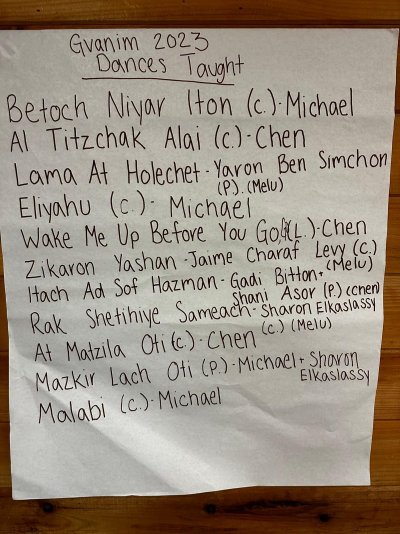 Gvanim 2023
Dances Taught
Betoch Niyar Iton (c.)· Michael
Al Titzchak Alai (c.)· Chen
Lama At Holechet · Yaron Ben Simchon
(P.) (Melu)
Eliyahu (c.)· Michael
Wake Me Up Before You Go (L.)· Chen
Zikaron Yashan - Jaime Charaf Levy (c.)
(Melu)
Hach Ad Sof Hazman - Gadi Bitton +
Shani Asor (P.) (Chen)
Rak Shetihiye Sameach - Sharon Elkaslassy
(c.) (Melu)
At Matzila Oti (c.)· Chen
Mazkir Lach Oti (P.)· Michael + Sharon
Elkaslassy
Malabi (c.)· Michael